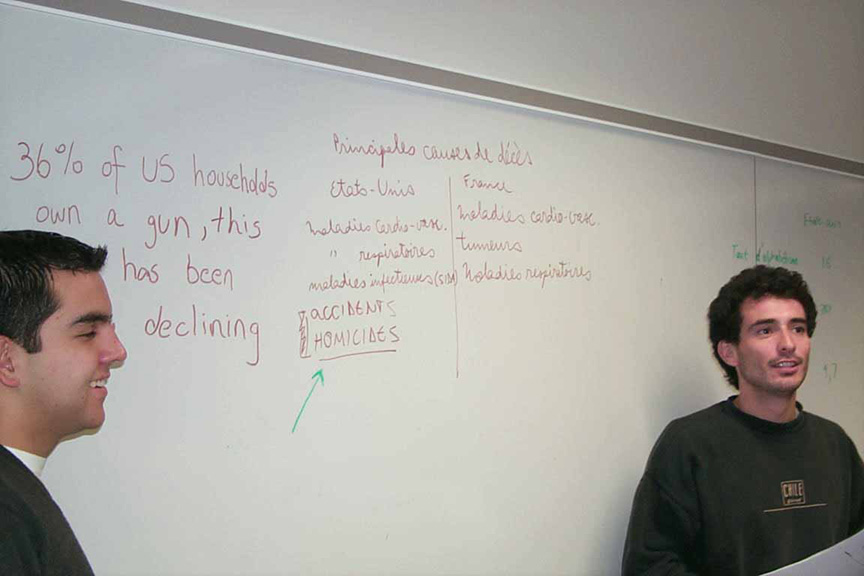 36% of US households
own a gun, this
has been
declining
Principales causes de décès
Etats-Unis
maladies cardio-vasc.
" respiratoires
maladies infectieuses (SIDA)
ACCIDENTS
HOMICIDES
France
maladies cardio-vasc.
tumeurs
Maladies respiratoires
Etats-Unis
Taux d'alphabétisme
16
9,7
CHILE